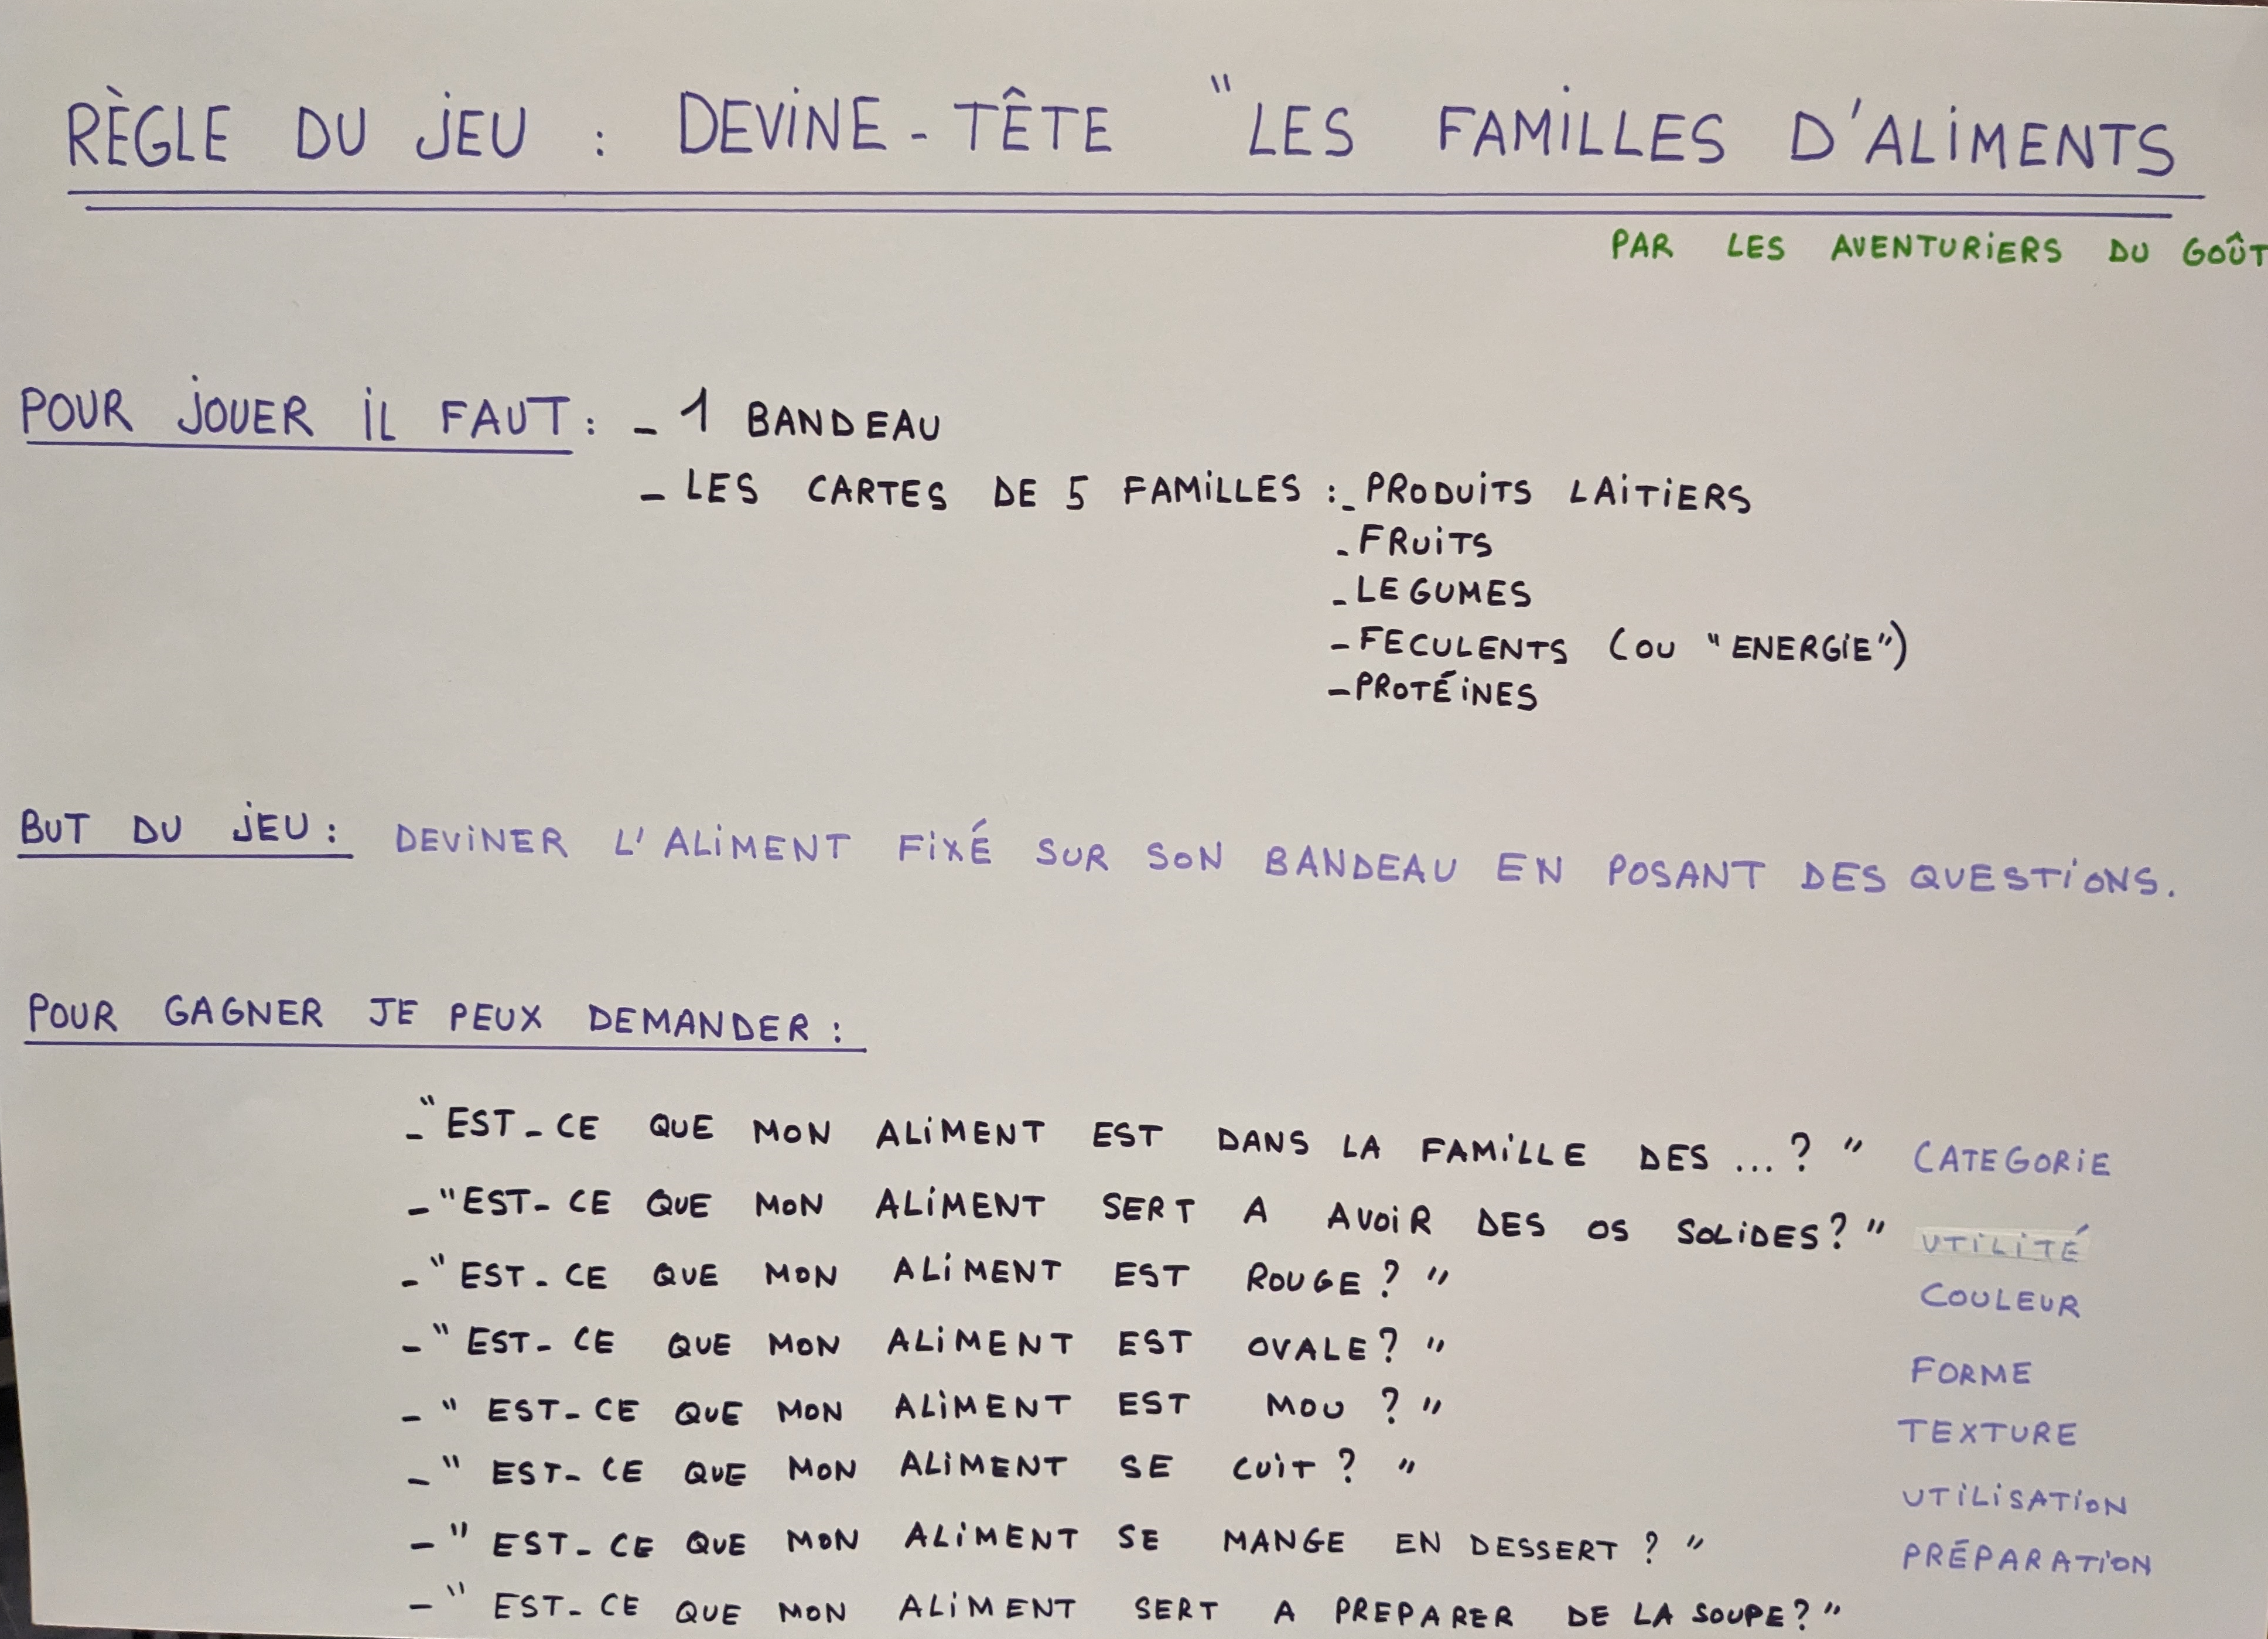 RÈGLE DU JEU : DEVINE-TÊTE "LES FAMILLES D'ALIMENTS
PAR LES AVENTURIERS DU GOÛT
POUR JOUER IL FAUT : - 1 BANDEAU
- LES CARTES DE 5 FAMILLES : - PRODUITS LAITIERS
- FRUITS
- LEGUMES
- FECULENTS (OU "ENERGIE")
- PROTÉINES
BUT DU JEU : DEVINER L'ALIMENT FIXÉ SUR SON BANDEAU EN POSANT DES QUESTIONS.
POUR GAGNER JE PEUX DEMANDER :
- "EST-CE QUE MON ALIMENT EST DANS LA FAMILLE DES ...? " CATEGORIE
- "EST-CE QUE MON ALIMENT SERT A AVOIR DES OS SOLIDES? " UTILITÉ
- "EST-CE QUE MON ALIMENT EST ROUGE? " COULEUR
- "EST-CE QUE MON ALIMENT EST OVALE? " FORME
- " EST-CE QUE MON ALIMENT EST MOU ? " TEXTURE
- " EST-CE QUE MON ALIMENT SE CUIT ? " UTILISATION
- " EST-CE QUE MON ALIMENT SE MANGE EN DESSERT ? " PRÉPARATION
- " EST-CE QUE MON ALIMENT SERT A PREPARER DE LA SOUPE? "